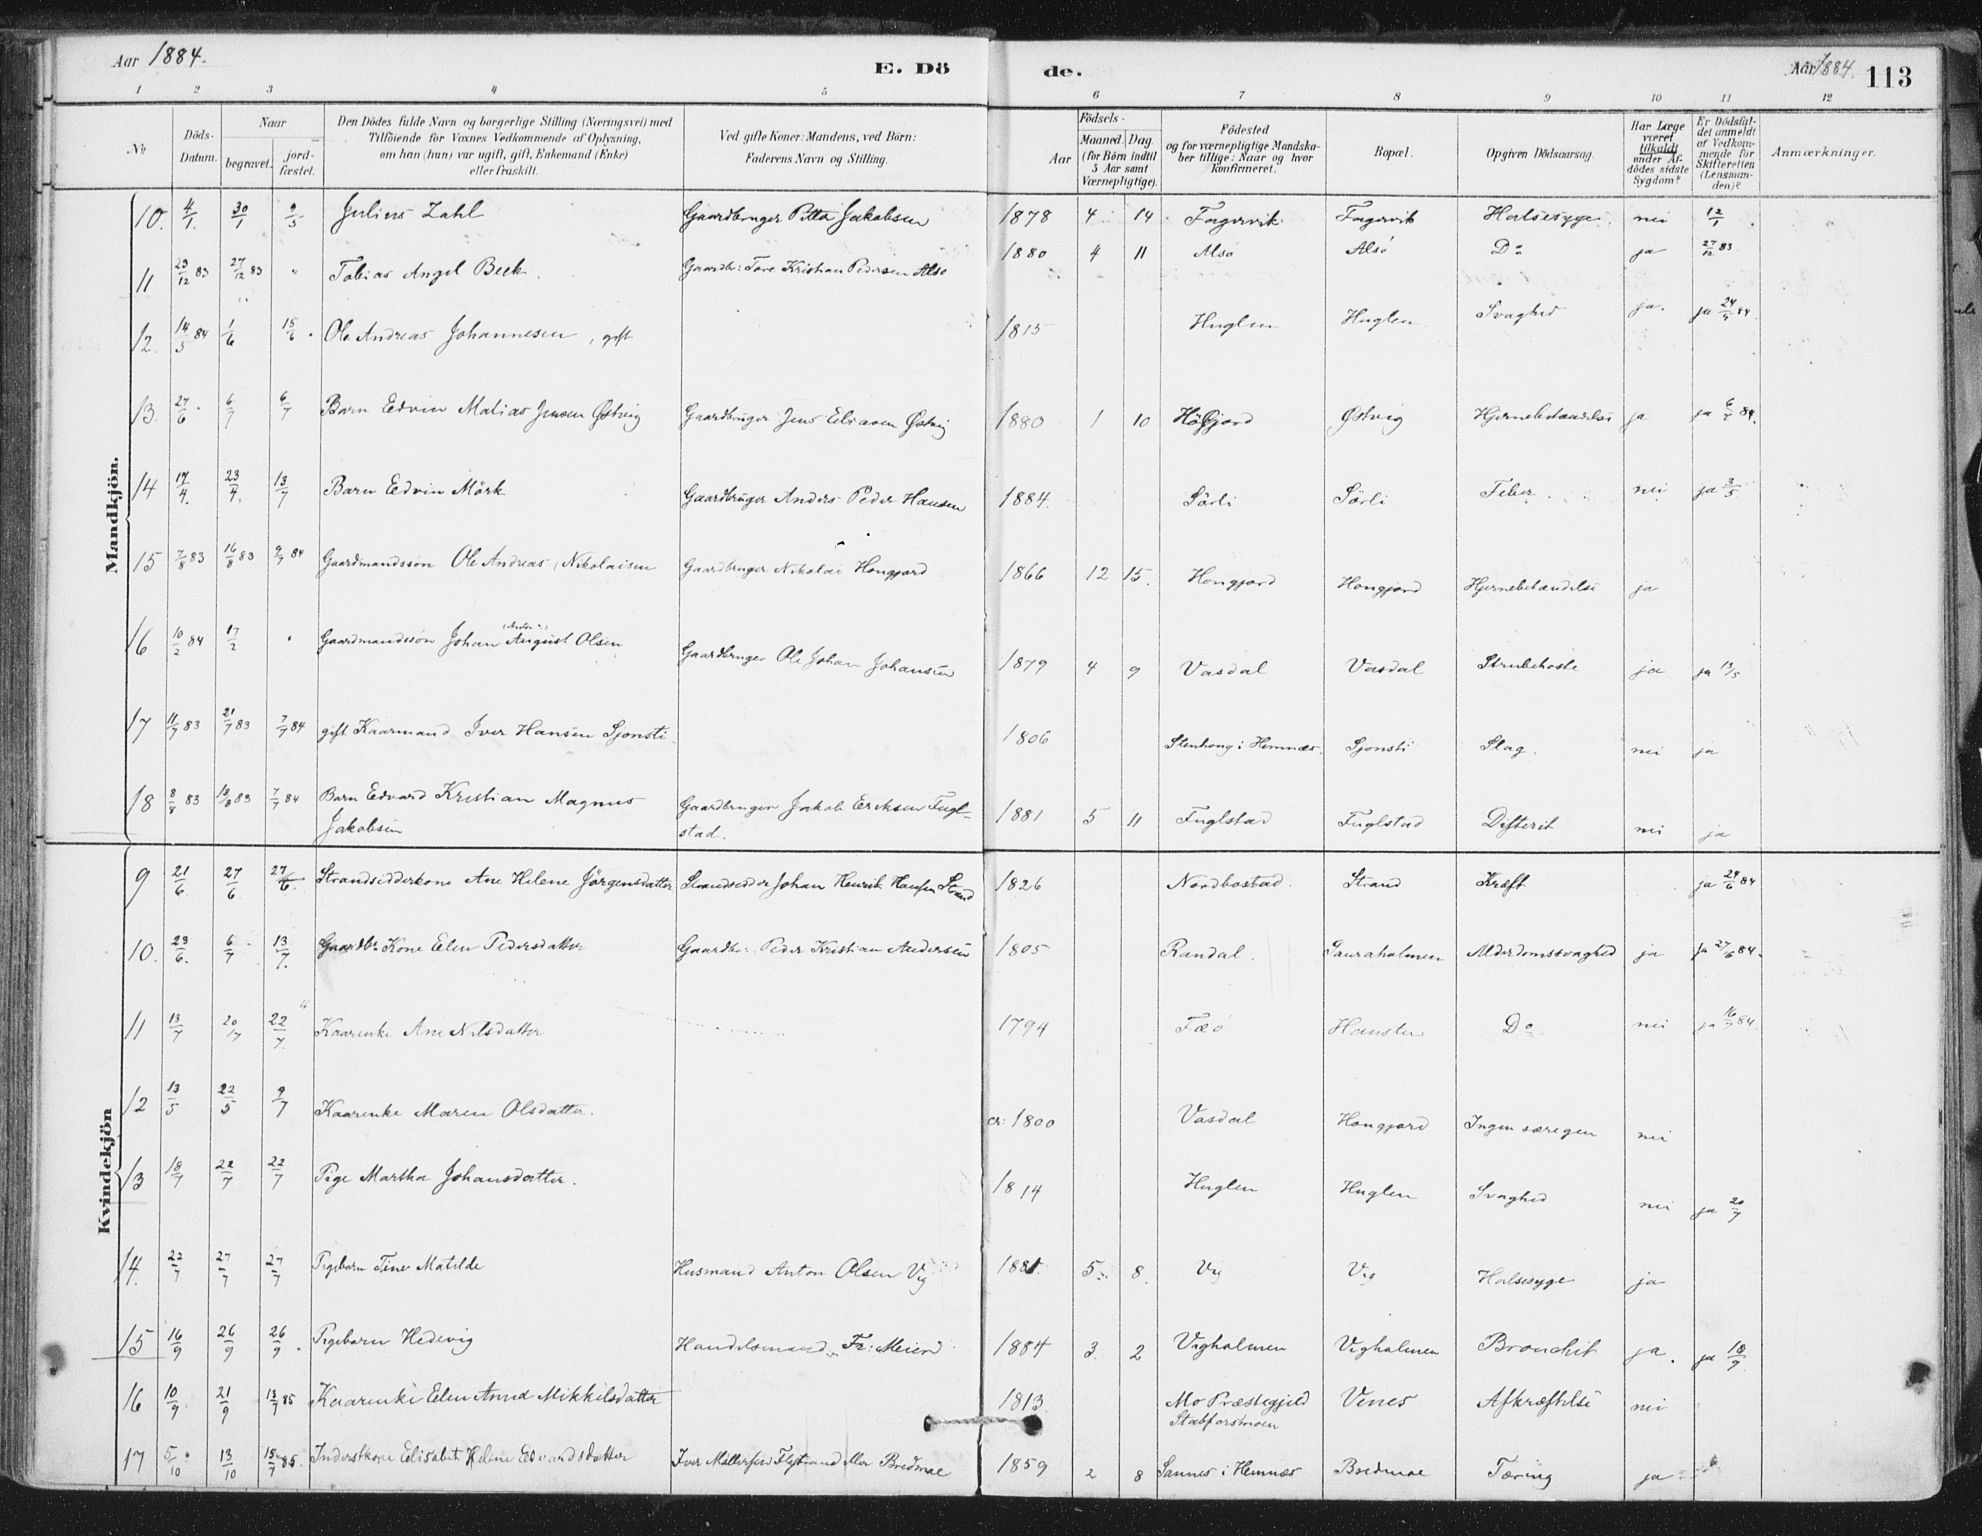 Aar 1884.
E. Dö
de.
Aar 1884.
113
1 2 3 4 5 6 7 8 9 10 11 12
No
Döds-Datum.
Naar
begravet.
jord-fæstet.
Den Dödes fulde Navn og borgerlige Stilling (Næringsvei) med
Tilföiende for Voxnes Vedkommende af Oplysning,
om han (hun) var ugift, gift, Enkemand (Enke)
eller fraskilt.
Ved gifte Koner: Mandens, ved Börn:
Faderens Navn og Stilling.
Födsels-
Aar
Maaned. Dag.
(for Börn indtil
5 Aar samt
Værnepligtige).
Födested
og for værnepligtige Mandska-
ber tillige: Naar og hvor
konfirmeret.
Bopæl.
Opgiven Dödsaarsag.
Har Læge
været
tilkaldt
under Af-
dödes sidste
Sygdom?
Er Dödsfal-
det anmeldt
af Vedkom-
mende for
Skifteretten
(Lensman-
den)?
Anmærkninger.
Mandkjön.
10. 4/1. 30/1 9/3 Julius Zahl Gaardbruger Petter Jakobsen 1878 4 14 Fagervik Fagervik Halsesyge nei 12/1
11 23/12 83 27/12 83 " Tobias Angel Beck. Gaardbr: Tore Kristian Pedersen Alsø 1880 4 11 Alsø Alsø Do ja 27/12 83
12. 14/5 84 1/6 15/6. Ole Andreas Johannesen, gift 1815 Huglen Huglen Svaghed ja. ja 24/5 84
13. 27/6. 6/7 6/7 Barn Edvin Matias Jensen Østvig Gaardbruger Jens Eliasen Østvig 1880 1 10 Høgfjord Østvig Hjernebetændelse ja ja 6/7 84.
14 17/4. 23/4. 13/7 Barn Edvin Mörk Gaardbruger Anders Peder Hansen 1884. Sörli Sörli Feber. nei ja 3/5
15 7/8 83 16/8 83 9/7 84 Gaardmandssøn Ole Andreas Nikolaisen Gaardbruger Nikolai Hongjord 1866 12 15. Hongjord Hongjord Hjernebetændelse ja
16 10/2 84 17/2 " Gaardmandssøn Johan (Anton) August Olsen Gaardbruger Ole Johan Johansen 1879 4 9 Vasdal Vasdal Strubehoste ja ja 13/5
17 11/7 83 21/7 83 7/7 84 gift Kaarmand Iver Hansen Sjonsti. 1806 Stenhong i Hemnæs. Sjonsti Slag. nei ja
18 8/8 83 13/8 83 7/7 84 Barn Edvard Kristian Magnus
Jakobsen Gaardbruger Jakob Eriksen Fugl-
stad. 1881 5 11 Fuglstad Fuglstad Difterit nei ja
Kvindekjön
9 21/6. 27/6 27/6. Strandsidderkone Ane Helene Jörgensdatter Strandsidder Johan Henrik Hansen Strand 1826 Nordbostad. Strand Kræft ja 24/6 84
10. 23/6. 6/7 13/7. Gaardbr. Kone Elen Pedersdatter Gaardbr: Peder Kristian Andersen 1805 Randal. Sauraholmen Alderdomssvaghed ja ja 27/6 84.
11 13/7 20/7 22/7. Kaarenke Ane Nilsdatter 1794 Fæø Do nei ja 16/7 84.
12 13/5 22/5 9/7 Kaarenke Maren Olsdatter. cr: 1800 Vasdal Hongjord Ingen særegen nei
13 18/7 22/7 22/7 Pige Martha Johansdatter. 1814 Huglen Huglen Svaghed nei ja 20/7
14. 22/7 27/7 27/7 Pigebarn Tine Matilde Husmand Anton Olsen Vig 1881. 5 8. Vig Vig Halsesyge ja
15 16/9 26/9 26/9. Pigebarn Hedevig Handelsmand Fr: Meier 1884 3. 2 Vigholmen Vigholmen Bronchit ja. ja 18/9.
16 10/9 21/9 13/7 85 Kaarenke Elen Anna Mikkelsdatter 1813. Mo Præstegjeld
Stabforsmoen Venes Afkræftelse nei
17 5/10 13/10 15/7 85. Inderstkone Elisabet Helene Edvardsdatter Iver eller Bredmoe 1859 2 8 Sannes i Hemnæs Bredmoe Tæring ja